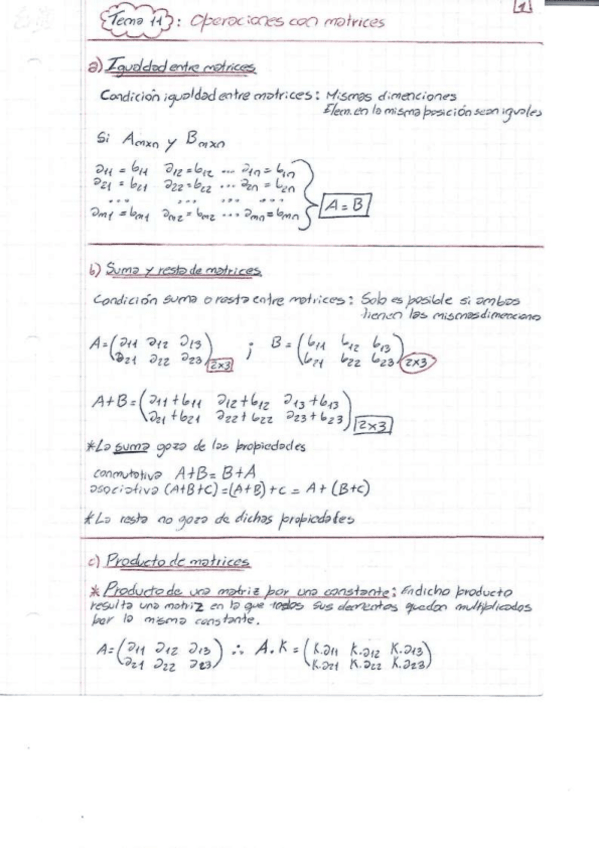 1
Tema 11: Operaciones con matrices
a) Igualdad entre matrices
Condición igualdad entre matrices: Mismas dimenciones
Elem. en la misma posición sean iguales
Si Amxn y Bmxn
a11 = b11 a12 = b12 ... a1n = b1n
a21 = b21 a22 = b22 ... a2n = b2n
... ... ... ...
am1 = bm1 am2 = bm2 ... amn = bmn
A = B
b) Suma y resta de matrices
Condición suma o resta entre matrices: Solo es posible si ambas
tienen las mismas dimenciones
A = (a11 a12 a13 ; B = (b11 b12 b13
a21 a22 a23) 2x3 b21 b22 b23) 2x3
A+B = (a11+b11 a12+b12 a13+b13
a21+b21 a22+b22 a23+b23) 2x3
*La suma goza de las propiedades
conmutativa A+B = B+A
asociativa (A+B+C) = (A+B)+C = A+(B+C)
*La resta no goza de dichas propiedades
c) Producto de matrices
* Producto de una matriz por una constante: En dicho producto
resulta una matriz en la que todos sus elementos quedan multiplicados
por la misma constante.
A = (a11 a12 a13 ∴ A.K = (K.a11 K.a12 K.a13
a21 a22 a23) K.a21 K.a22 K.a23)